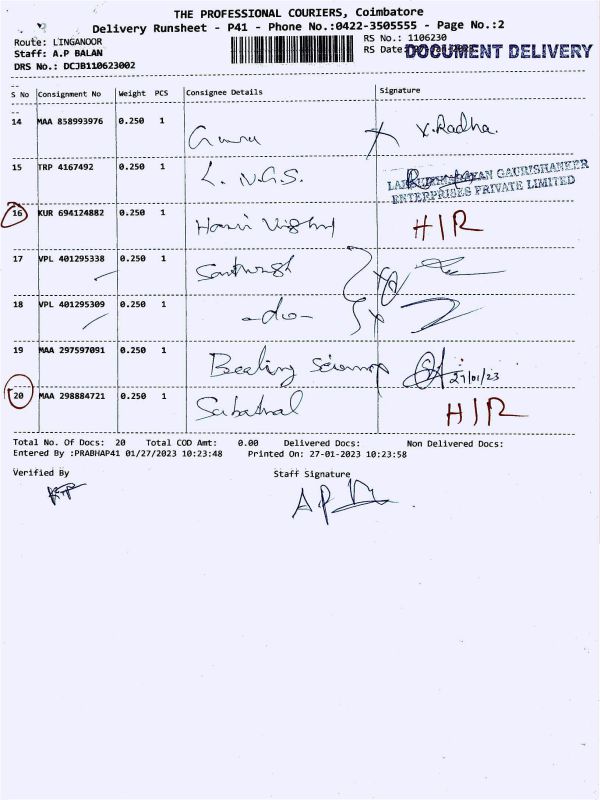 THE PROFESSIONAL COURIERS, Coimbatore
Delivery Runsheet - P41 - Phone No.:0422-3505555 - Page No.:2
Route: LINGANOOR
RS No.: 1106230
Staff: A.P BALAN
RS Date:
DOCUMENT DELIVERY
DRS No.: DCJB110623002
S No Consignment No Weight PCS Consignee Details Signature
14 MAA 858993976 0.250 1 Guru V.Radha.
15 TRP 4167492 0.250 1 L.N.G.S.
GAURISHANKER
ENTERPRISES PRIVATE LIMITED
16 KUR 694124882 0.250 1 H/R
17 VPL 401295338 0.250 1
18 VPL 401295309 0.250 1 -do-
19 MAA 297597091 0.250 1 27/01/23
20 MAA 298884721 0.250 1 H/R
Total No. Of Docs: 20 Total COD Amt: 0.00 Delivered Docs: Non Delivered Docs:
Entered By :PRABHAP41 01/27/2023 10:23:48 Printed On: 27-01-2023 10:23:58
Verified By Staff Signature